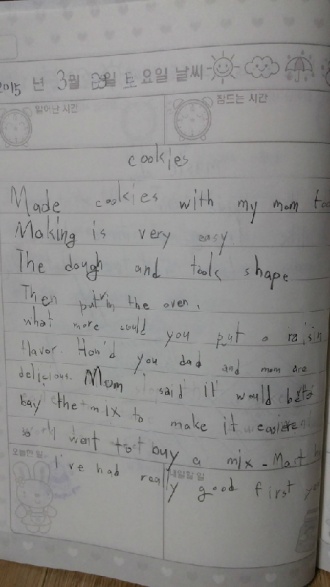 2015 년 3월 29일 토요일 날씨
일어난 시간
잠드는 시간
cookies
Made cookies with my mom
Making is very easy
The dough and took shape
Then put in the oven.
what more could you put a raisin
flavor. How'd you dad and mom are
delicious. Mom I said it would
buy the mix to make it
want to buy a mix - Mart
오늘한 일
내일할 일
I've had really good first